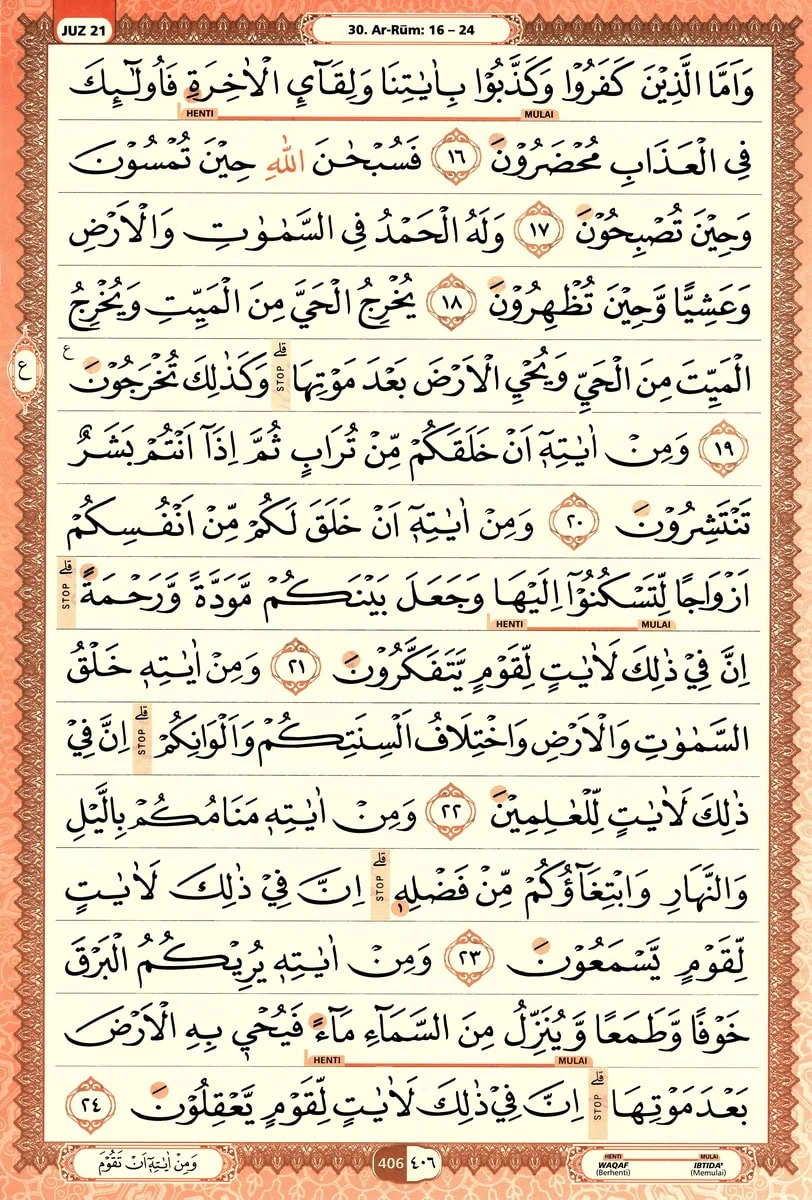 JUZ 21
30. Ar-Rūm: 16 – 24
وَاَمَّا الَّذِيْنَ كَفَرُوْا وَكَذَّبُوْا بِاٰيٰتِنَا وَلِقَاۤئِ الْاٰخِرَةِ فَاُولٰۤىِٕكَ
HENTI MULAI
فِى الْعَذَابِ مُحْضَرُوْنَ ١٦ فَسُبْحٰنَ اللّٰهِ حِيْنَ تُمْسُوْنَ
وَحِيْنَ تُصْبِحُوْنَ ١٧ وَلَهُ الْحَمْدُ فِى السَّمٰوٰتِ وَالْاَرْضِ
وَعَشِيًّا وَّحِيْنَ تُظْهِرُوْنَ ١٨ يُخْرِجُ الْحَيَّ مِنَ الْمَيِّتِ وَيُخْرِجُ
الْمَيِّتَ مِنَ الْحَيِّ وَيُحْيِ الْاَرْضَ بَعْدَ مَوْتِهَا ۗ STOP وَكَذٰلِكَ تُخْرَجُوْنَ ع
ع
١٩ وَمِنْ اٰيٰتِهٖٓ اَنْ خَلَقَكُمْ مِّنْ تُرَابٍ ثُمَّ اِذَآ اَنْتُمْ بَشَرٌ
تَنْتَشِرُوْنَ ٢٠ وَمِنْ اٰيٰتِهٖٓ اَنْ خَلَقَ لَكُمْ مِّنْ اَنْفُسِكُمْ
اَزْوَاجًا لِّتَسْكُنُوْٓا اِلَيْهَا وَجَعَلَ بَيْنَكُمْ مَّوَدَّةً وَّرَحْمَةً ۗ STOP
HENTI MULAI
اِنَّ فِيْ ذٰلِكَ لَاٰيٰتٍ لِّقَوْمٍ يَّتَفَكَّرُوْنَ ٢١ وَمِنْ اٰيٰتِهٖ خَلْقُ
السَّمٰوٰتِ وَالْاَرْضِ وَاخْتِلَافُ اَلْسِنَتِكُمْ وَاَلْوَانِكُمْ ۗ STOP اِنَّ فِيْ
ذٰلِكَ لَاٰيٰتٍ لِّلْعٰلِمِيْنَ ٢٢ وَمِنْ اٰيٰتِهٖ مَنَامُكُمْ بِالَّيْلِ
وَالنَّهَارِ وَابْتِغَاۤؤُكُمْ مِّنْ فَضْلِهٖ ۗ STOP اِنَّ فِيْ ذٰلِكَ لَاٰيٰتٍ
لِّقَوْمٍ يَّسْمَعُوْنَ ٢٣ وَمِنْ اٰيٰتِهٖ يُرِيْكُمُ الْبَرْقَ
خَوْفًا وَّطَمَعًا وَّيُنَزِّلُ مِنَ السَّمَاۤءِ مَاۤءً فَيُحْيٖ بِهِ الْاَرْضَ
HENTI MULAI
بَعْدَ مَوْتِهَا ۗ STOP اِنَّ فِيْ ذٰلِكَ لَاٰيٰتٍ لِّقَوْمٍ يَّعْقِلُوْنَ ٢٤
وَمِنْ اٰيٰتِهٖٓ اَنْ تَقُوْمَ
406 ٤٠٦
HENTI MULAI
WAQAF IBTIDA'
(Berhenti) (Memulai)